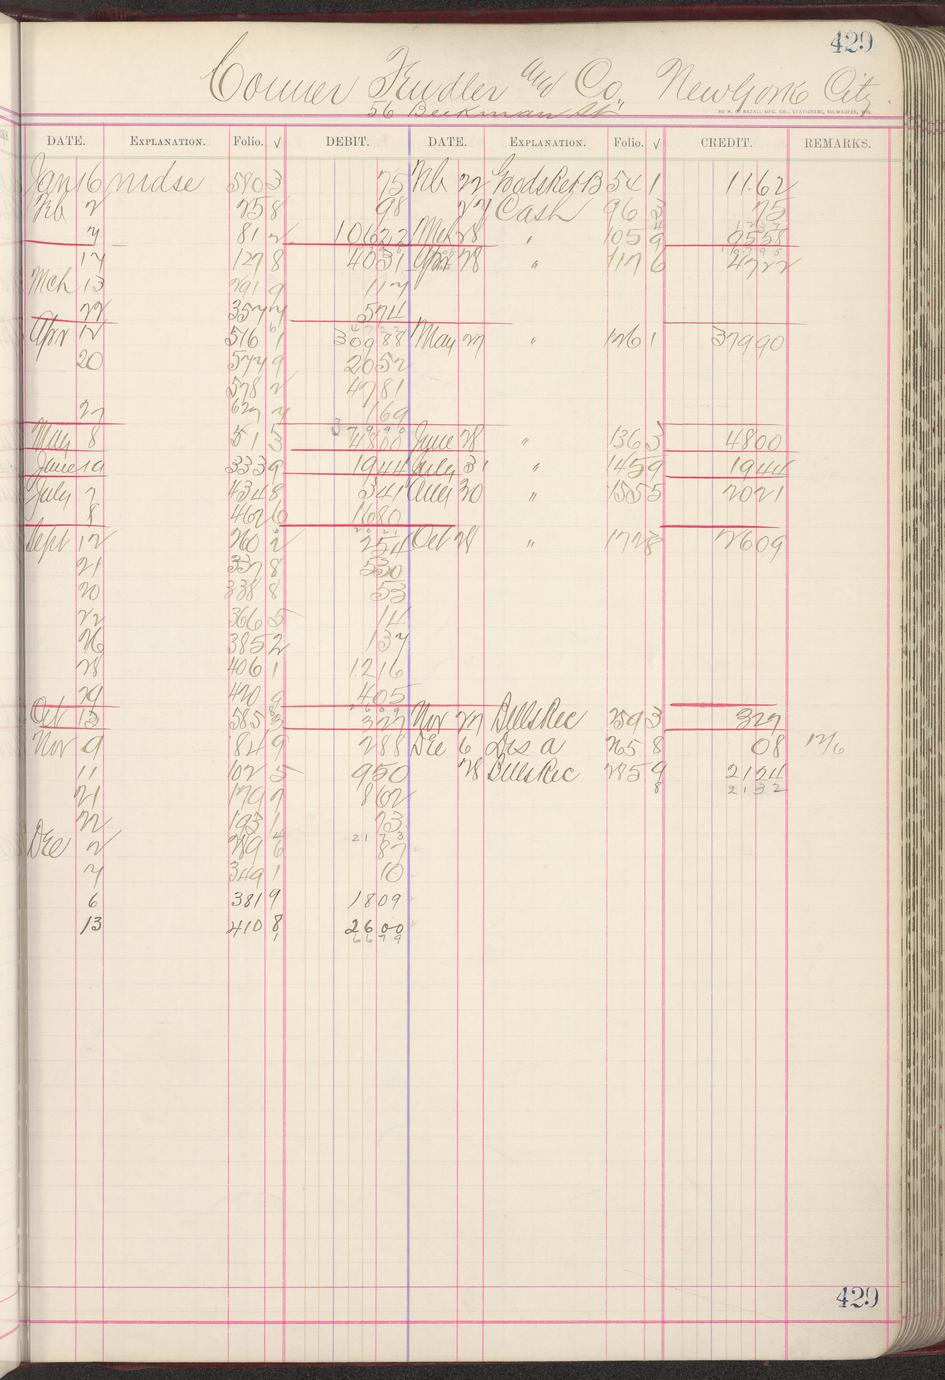 429
Conner Fendler and Co. New York City
56 Beekman St.
DATE. EXPLANATION. Folio. √ DEBIT. DATE. EXPLANATION. Folio. √ CREDIT. REMARKS.
Jany 16 mdse 580 3 75 Feb 22 Goods Ret B 54 1 11.62
Feb 2 25 8 98 27 Cash 96 3 75
7 81 2 10622 Mch 28 " 105 9 9558
17 127 8 4031 Apr 28 " 117 6 4722
Mch 13 291 9 117
22 357 7 574
Apr 12 516 1 30988 May 27 " 126 1 37990
20 544 9 2052
578 2 4781
27 627 7 169
37990
May 8 51 3 4800 June 28 " 136 3 4800
June 19 333 9 1944 July 31 " 145 9 1944
July 2 434 8 341 Aug 30 " 155 5 2021
8 462 6 1680
Sept 12 260 2 254 Oct 28 " 172 8 2609
21 337 8 530
20 338 8 53
22 366 5 14
26 385 2 137
28 406 1 1216
29 420 9 405
Oct 13 585 3 327 Nov 27 Bills Rec 259 3 327
Nov 9 84 9 288 Dec 6 Dis a 265 8 08 12/6
11 102 5 950 28 Bills Rec 285 9 2124
21 170 7 862 8 2132
22 193 1 73
2173
Dec 2 289 6 87
7 349 1 10
6 381 9 1809
13 410 8 2600
6679
429